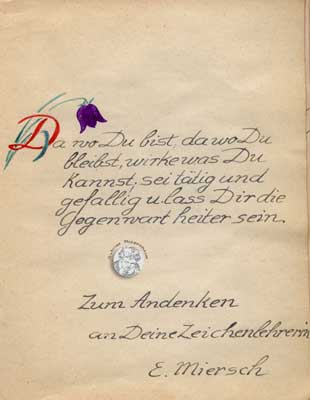 Da wo Du bist, da wo Du
bleibst, wirke was Du
kannst, sei tätig und
gefällig u. lass Dir die
Gegenwart heiter sein.
Zum Andenken
an Deine Zeichenlehrerin
E. Miersch